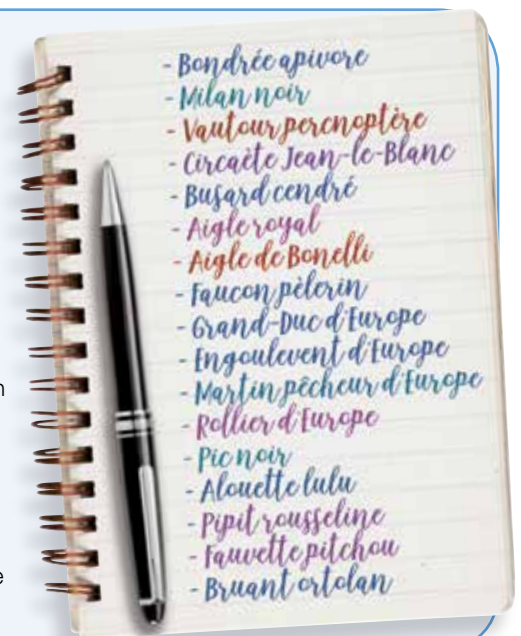 - Bondrée apivore
- Milan noir
- Vautour percnoptère
- Circaète Jean-le-Blanc
- Busard cendré
- Aigle royal
- Aigle de Bonelli
- Faucon pèlerin
- Grand-Duc d'Europe
- Engoulevent d'Europe
n
- Martin pêcheur d'Europe
- Rollier d'Europe
- Pic noir
- Alouette lulu
- Pipit rousseline
- Fauvette pitchou
e
- Bruant ortolan